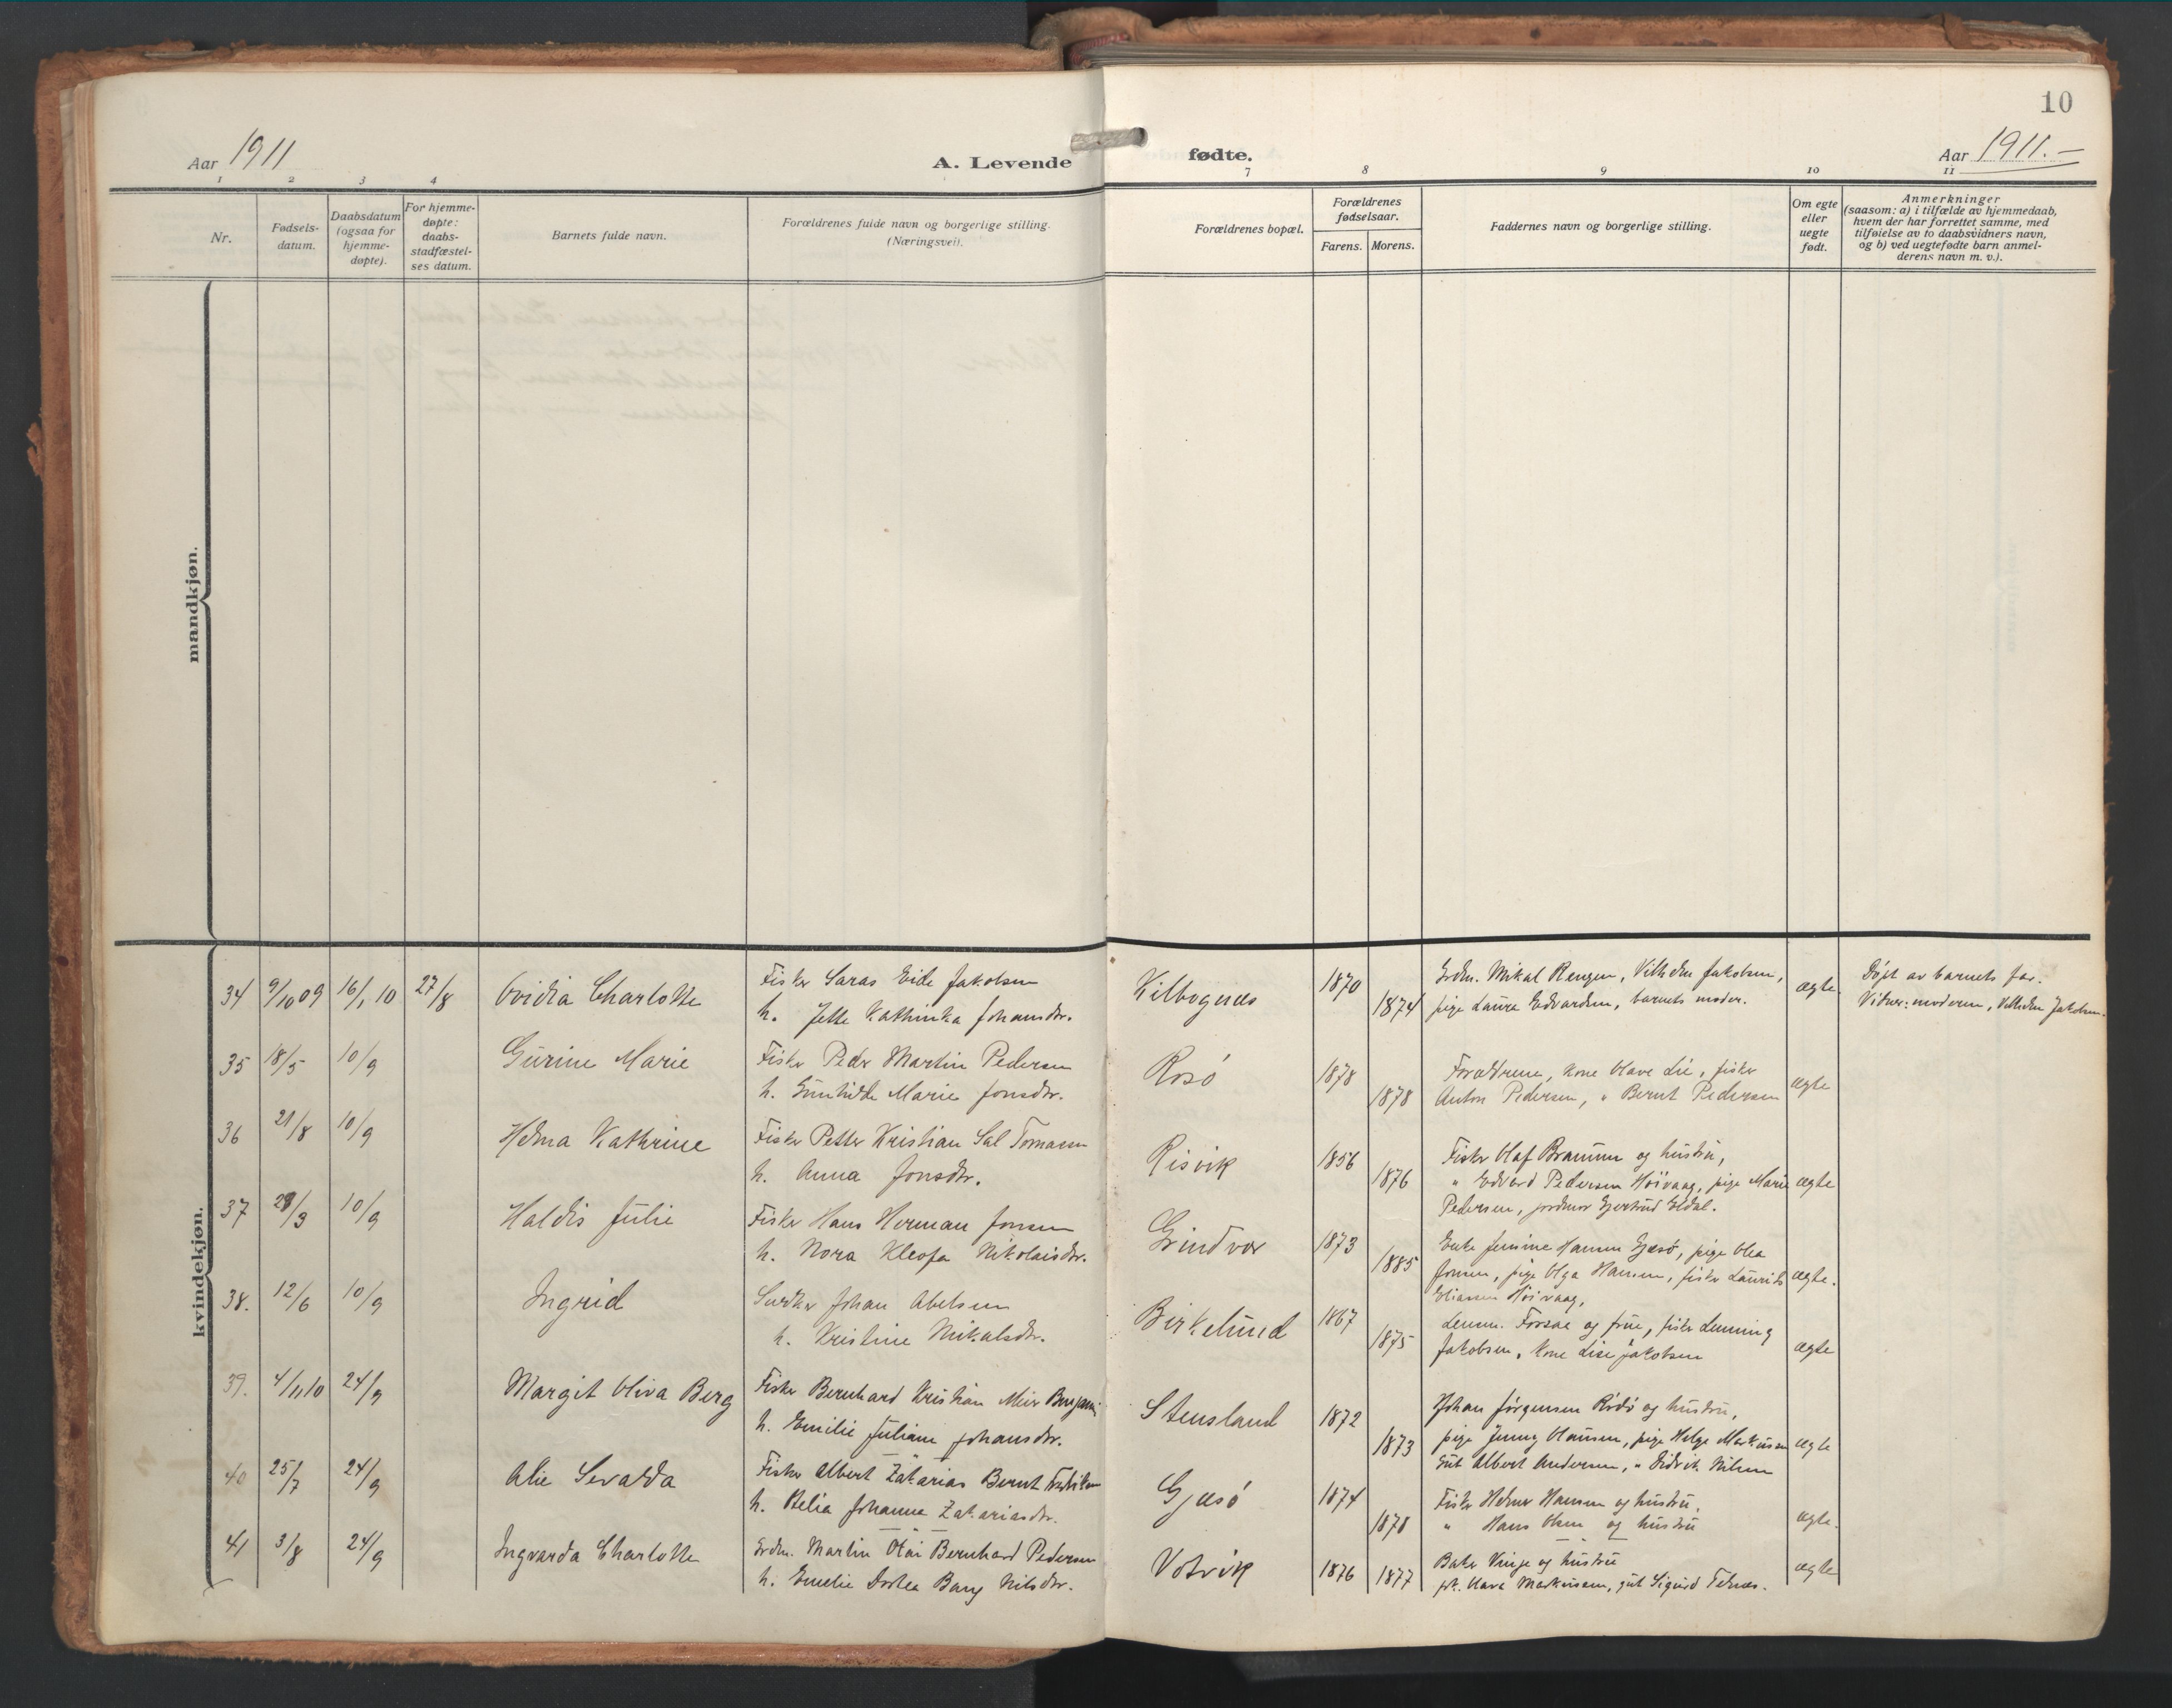 10
Aar 1911
A. Levende fødte.
Aar 1911.-
1 2 3 4 7 8 9 10 11
Nr.
Fødselsdatum.
Daabsdatum (ogsaa for hjemmedøpte).
For hjemmedøpte: daabsstadfæstelses datum.
Barnets fulde navn.
Forældrenes fulde navn og borgerlige stilling. (Næringsvei).
Forældrenes bopæl.
Forældrenes fødselsaar.
Farens. Morens.
Faddernes navn og borgerlige stilling.
Om egte eller uegte født.
Anmerkninger
(saasom: a) i tilfælde av hjemmedaab,
hvem der har forrettet samme, med
tilføielse av to daabsvidners navn,
og b) ved uegtefødte barn anmelderens navn m. v.).
mandkjøn.
kvindekjøn.
34 9/10 09 16/1 10 27/8 Ovidia Charlotte Fisker Saras Eide Jakobsen
h. Jette Kathinka Johansdtr.
Kilbognes 1870 1874 Grdm. Mikal Rengen, Vilhelm Jakobsen,
pige Laura Edvardsen, barnets moder.
ægte. Døpt av barnets far.
Vidner: moderen, Vilhelm Jakobsen.
35 18/5 10/9 Gurine Marie Fisker Peder Martin Pedersen
h. Gunhilde Marie Jonsdtr.
Rosö 1878 1878 Forældrene, kone Olave Lie, fisker
Anton Pedersen, " Bernt Pedersen ægte
36 21/8 10/9 Helma Kathrine Fisker Petter Kristian Sal Tomassen
h. Anna Jonsdtr.
Risvik 1856 1876 Fisker Olaf Bramun og hustru,
" Edvard Pedersen Höivaag, pige Marie ægte
Pedersen, jordmor Gjertrud Eldal.
37 10/9 Haldis Julie Fisker Hans Herman Jonsen
h. Nora Kleofa Nikolaisdtr.
Grindvor 1873 1885 Enke Jensine Hansen Gjæsö, pige Olea
Jonsen, pige Olga Hansen, fisker Laurits ægte.
Eliassen Höivaag,
38. 12/6 10/9 Ingrid Johan Abelsen
h. Kristine Mikalsdtr.
Birkelund 1867 1875 Lensm. Forsaa og frue, fisker Lenning
Jakobsen, kone Lise Jakobsen ægte
39. 4/11 10 24/9 Margit Oliva Berg Fisker Bernhard Kristian Meier
h. Emilie Juliane Johansdtr.
Stensland 1872 1873 Johan Jörgensen Rödö og hustru,
pige Jenny Olausen, pige Helga Markussen ægte
gut Albert Andersen, " Didrik Nilsen
40 25/7 24/9 Alie Sevalda Fisker Albert Zakarias Bernt Fredriksen
h. Helia Johanna Zakariasdtr.
Gjæsö 1874 1878 Fisker Helmer Hansen og hustru,
" Hans Olsen og hustru ægte.
41 3/8 24/9 Ingvarda Charlotte Grdm. Martin Otar Bernhard Pedersen
h. Emelie Dortea Bang Nilsdtr.
Votvik 1876 1877 Baker Vinje og hustru
frk. Klara Markussen, gut Sigurd Telnes. ægte